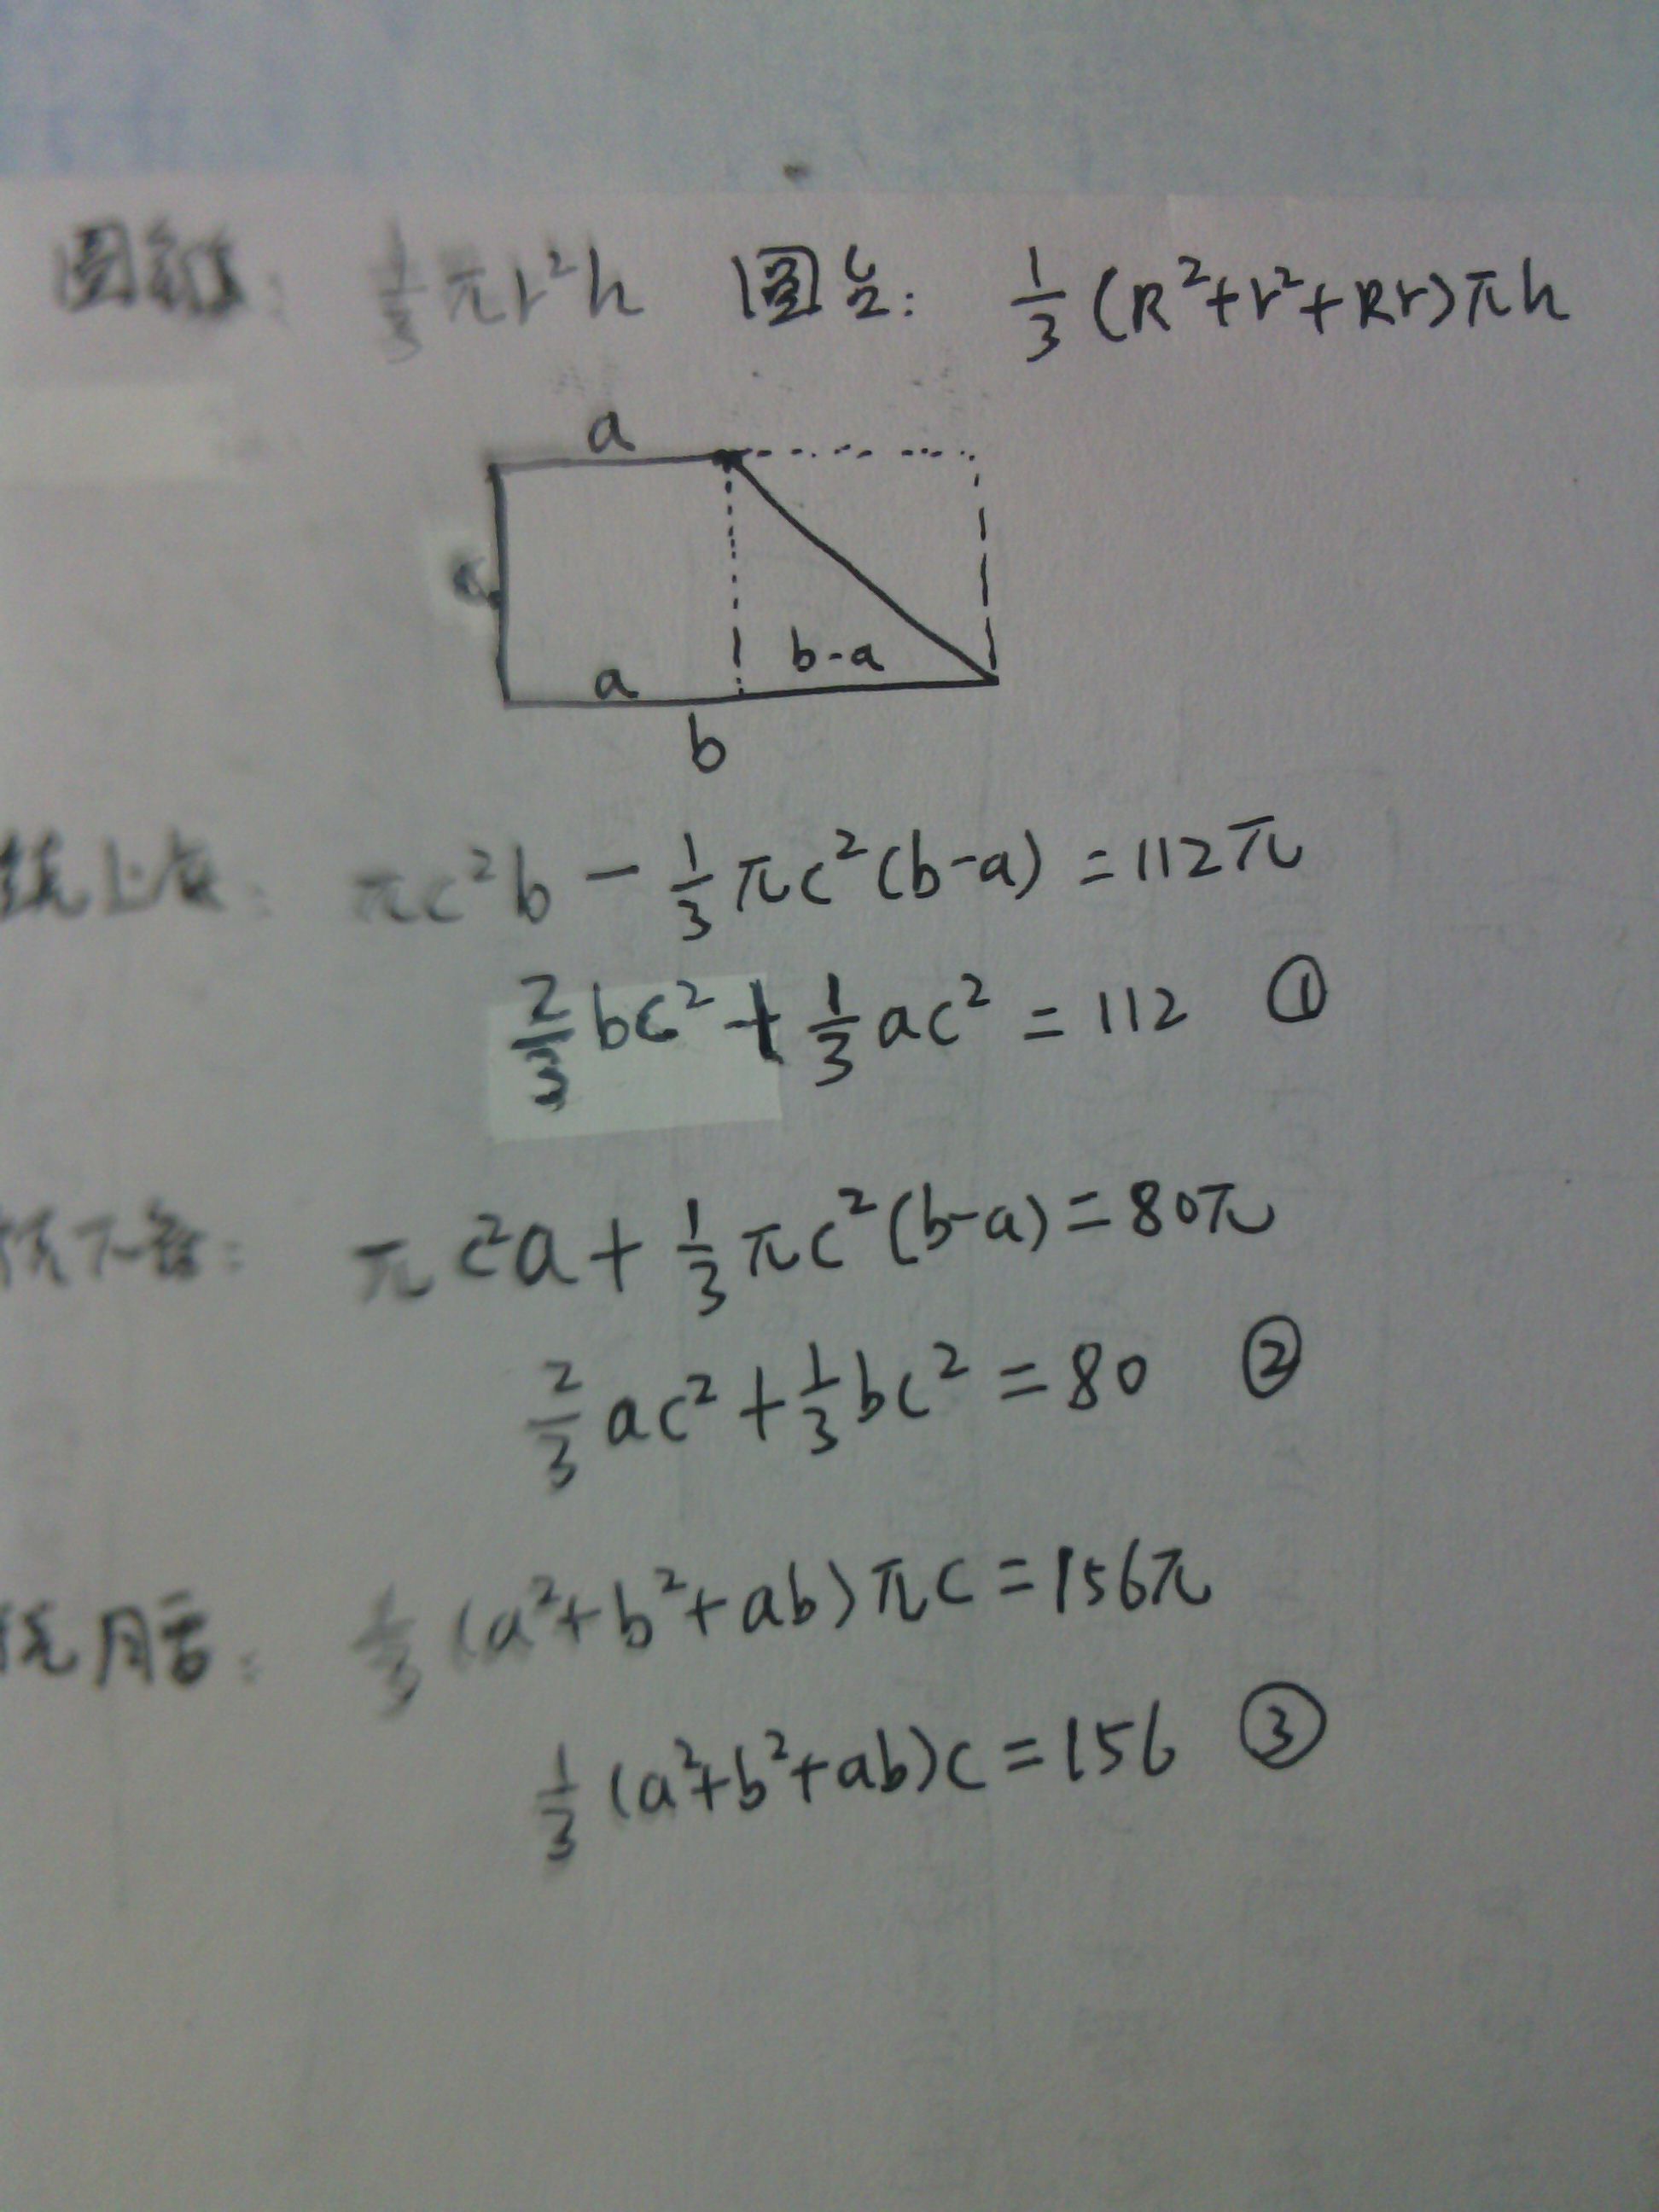 圆锥: 1/3 πr²h 圆台: 1/3 (R²+r²+Rr)πh
a
c
a b-a
b
绕上底: πc²b - 1/3 πc²(b-a) = 112π
2/3 bc² + 1/3 ac² = 112 ①
绕下底: πc²a + 1/3 πc²(b-a) = 80π
2/3 ac² + 1/3 bc² = 80 ②
绕月舌: 1/3 (a²+b²+ab)πc = 156π
1/3 (a²+b²+ab)c = 156 ③